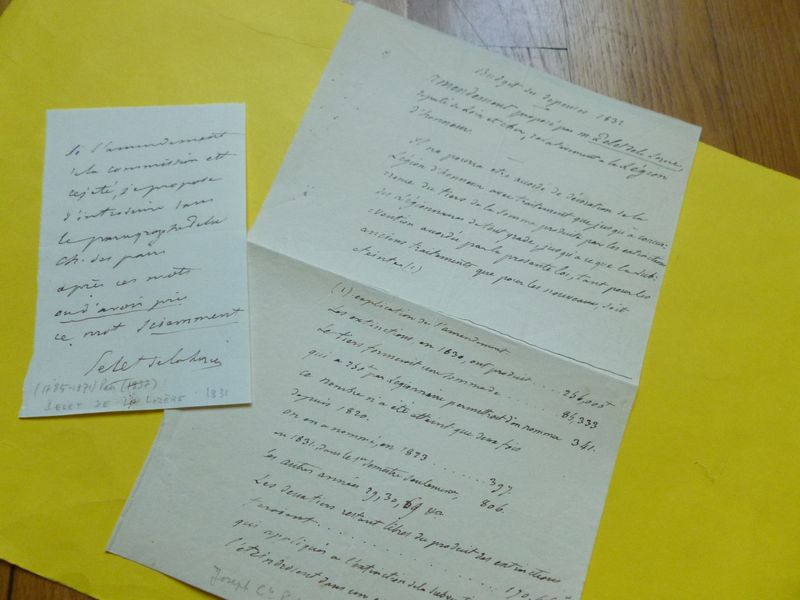 Si l'amendement
de la commission est
rejeté, je propose
d'introduire dans
le paragraphe de la
Ch. des pairs
après ces mots
ou d'avoir pris
ce mot sciemment
Pelet de la Lozère
(1785-1871) Pair (1837)
PELET DE LA LOZÈRE 1831
Budget des dépenses 1832
Amendement proposé par M. Pelet de la Lozère,
député de Loir et Cher, relativement à la Légion
d'honneur.
Il ne pourra être accordé de décoration de la
Légion d'honneur avec traitement que jusqu'à concur-
rence du tiers de la somme produite par les extinctions
des Légionnaires de tout grade, jusqu'à ce que la sub-
vention accordée par la présente loi, tant pour les
anciens traitements que pour les nouveaux, soit
éteinte (1)
(1) explication de l'amendement
Les extinctions, en 1830, ont produit . . . 256,000 f
Le tiers formerait une somme de . . . . 85,333
qui à 250 f par Légionnaire permettrait d'en nommer 341.
ce nombre n'a été atteint que deux fois
depuis 1820.
on en a nommé, en 1823 . . . . . . . 397.
en 1831, dans le 1er semestre seulement, 806.
les autres années 29, 30,
Les deux tiers restant libres du produit des extinctions
seraient . . . . . . . . . . 170,
qui appliqués à l'extinction de la subvention
l'éteindroient dans un
Joseph Cte